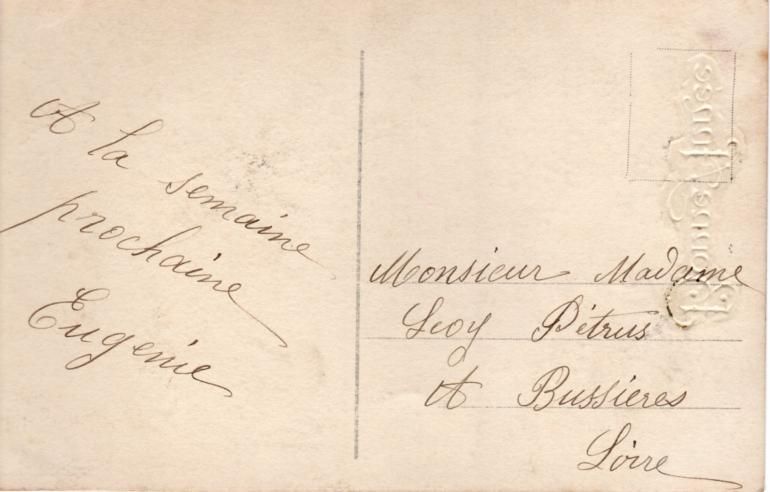 A la semaine
prochaine
Eugenie
Monsieur Madame
Pétrus
A Bussieres
Loire
Bonne Année